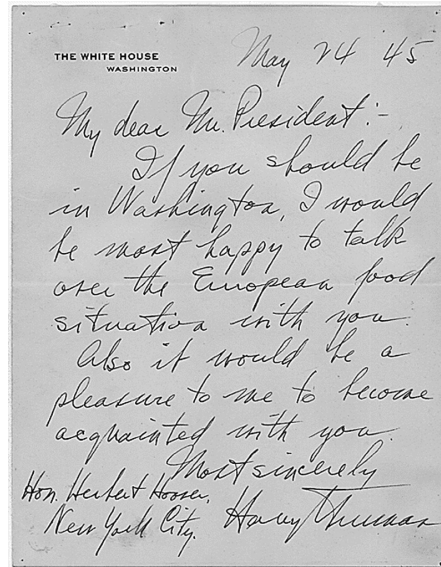 THE WHITE HOUSE
WASHINGTON
May 24 45
My dear Mr. President:-
If you should be
in Washington, I would
be most happy to talk
over the European food
situation with you.
Also it would be a
pleasure to me to become
acquainted with you.
Most sincerely
Hon. Herbert Hoover,
New York City. Harry Truman